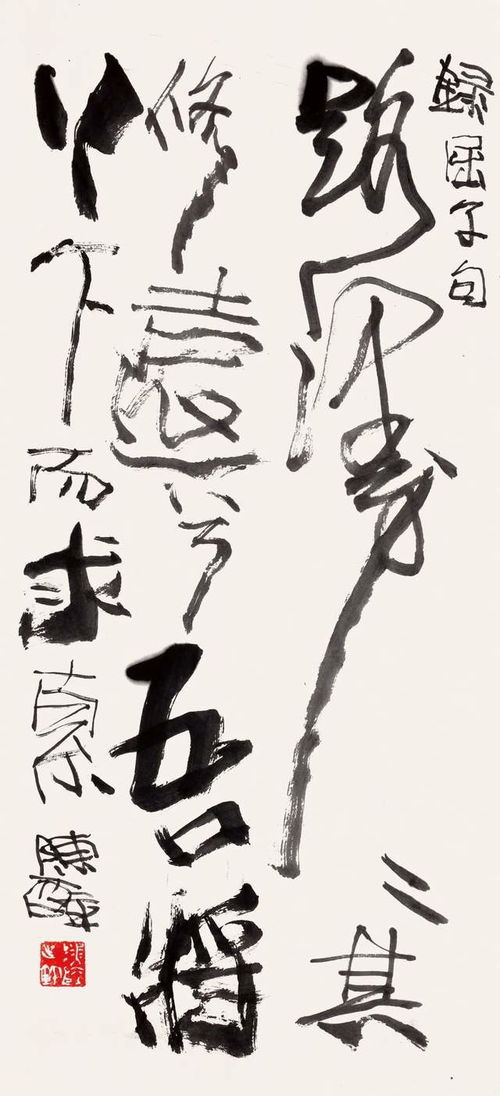 録屈子句
路漫〻其
修遠兮吾將
上下而求索
陳醉